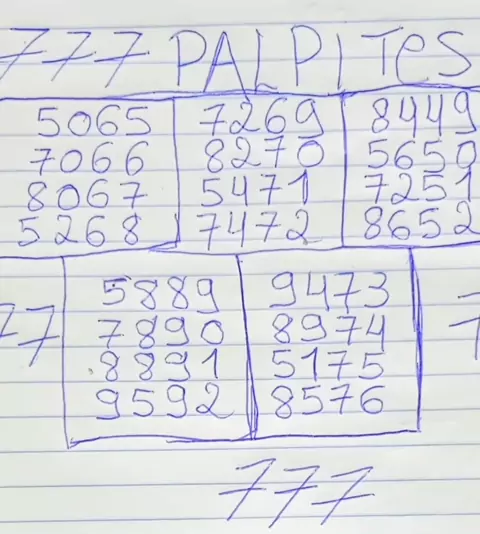 777 PALPITES
5065 7269 8449
7066 8270 5650
8067 5471 7251
5268 7472 8652
5889 9473
77 7890 8974 7
8891 5175
9592 8576
777